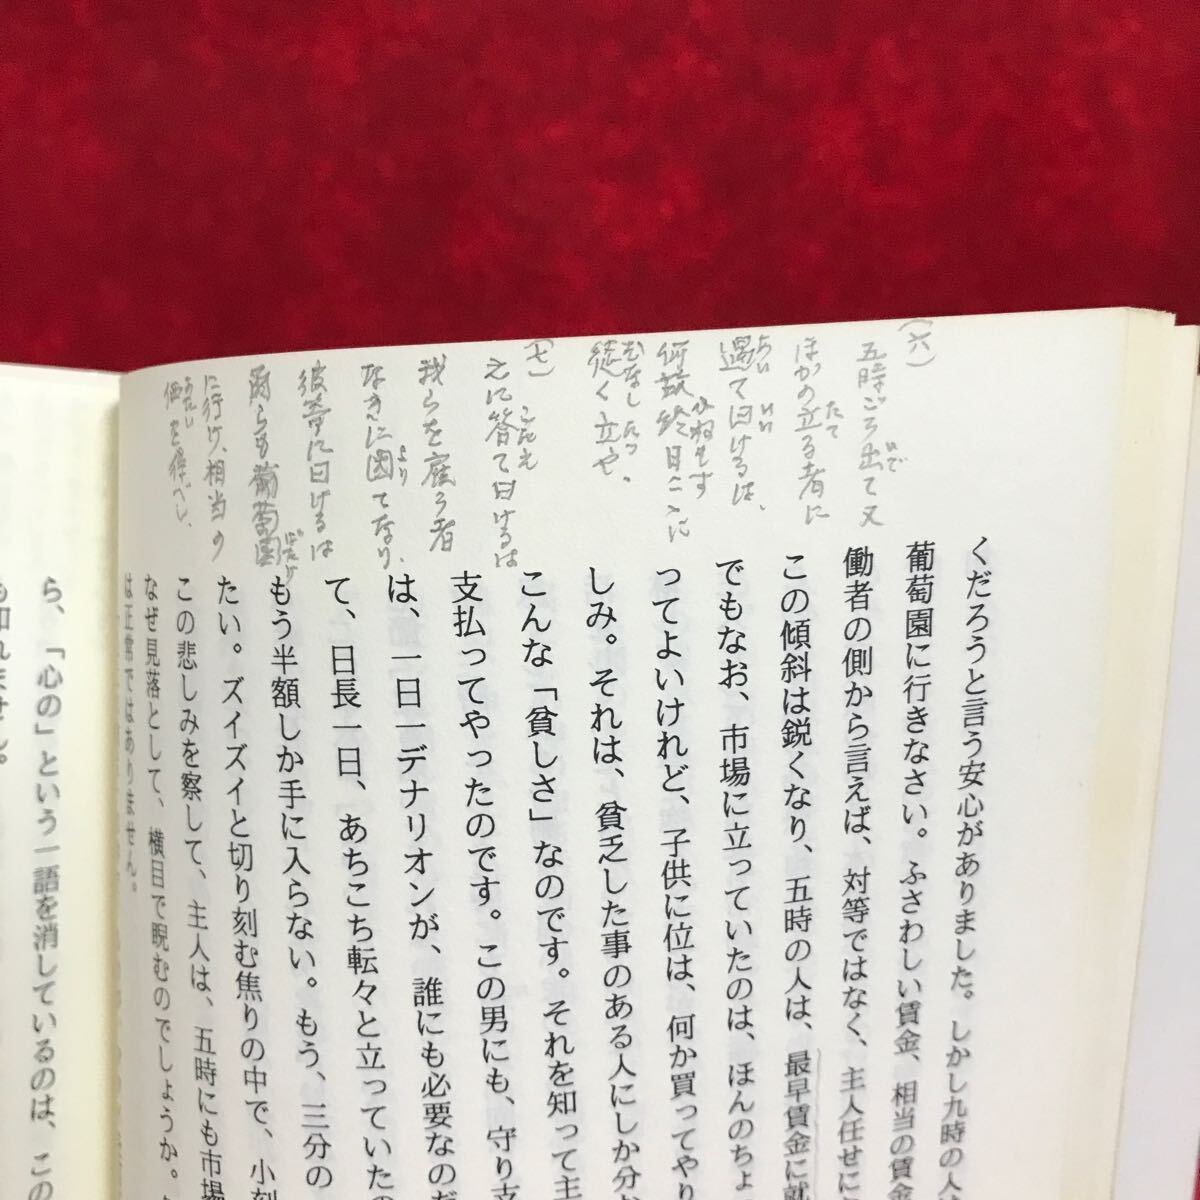 （六）
五時ごろ出て又
ほかの立る者に
遇て曰けるは、
何故終日ここに
徒く立や、
（七）
えに答て曰けるは
我らを雇う者
なきに因てなり、
彼等に曰けるは
爾らも葡萄園
に行け、相当の
価を得べし、
くだろうと言う安心がありました。しかし九時の人
葡萄園に行きなさい。ふさわしい賃金、相当の賃
働者の側から言えば、対等ではなく、主人任せに
この傾斜は鋭くなり、五時の人は、最早賃金に就
でもなお、市場に立っていたのは、ほんのちょ
ってよいけれど、子供に位は、何か買ってやり
しみ。それは、貧乏した事のある人にしか分
こんな「貧しさ」なのです。それを知って主
支払ってやったのです。この男にも、守り支
は、一日一デナリオンが、誰にも必要なのだ
て、日長一日、あちこち転々と立っていた
もう半額しか手に入らない。もう、三分の
たい。ズイズイと切り刻む焦りの中で、小刻
この悲しみを察して、主人は、五時にも市場
なぜ見落として、横目で睨むのでしょうか。
は正常ではありません。
ら、「心の」という一語を消しているのは、この
も知れません。